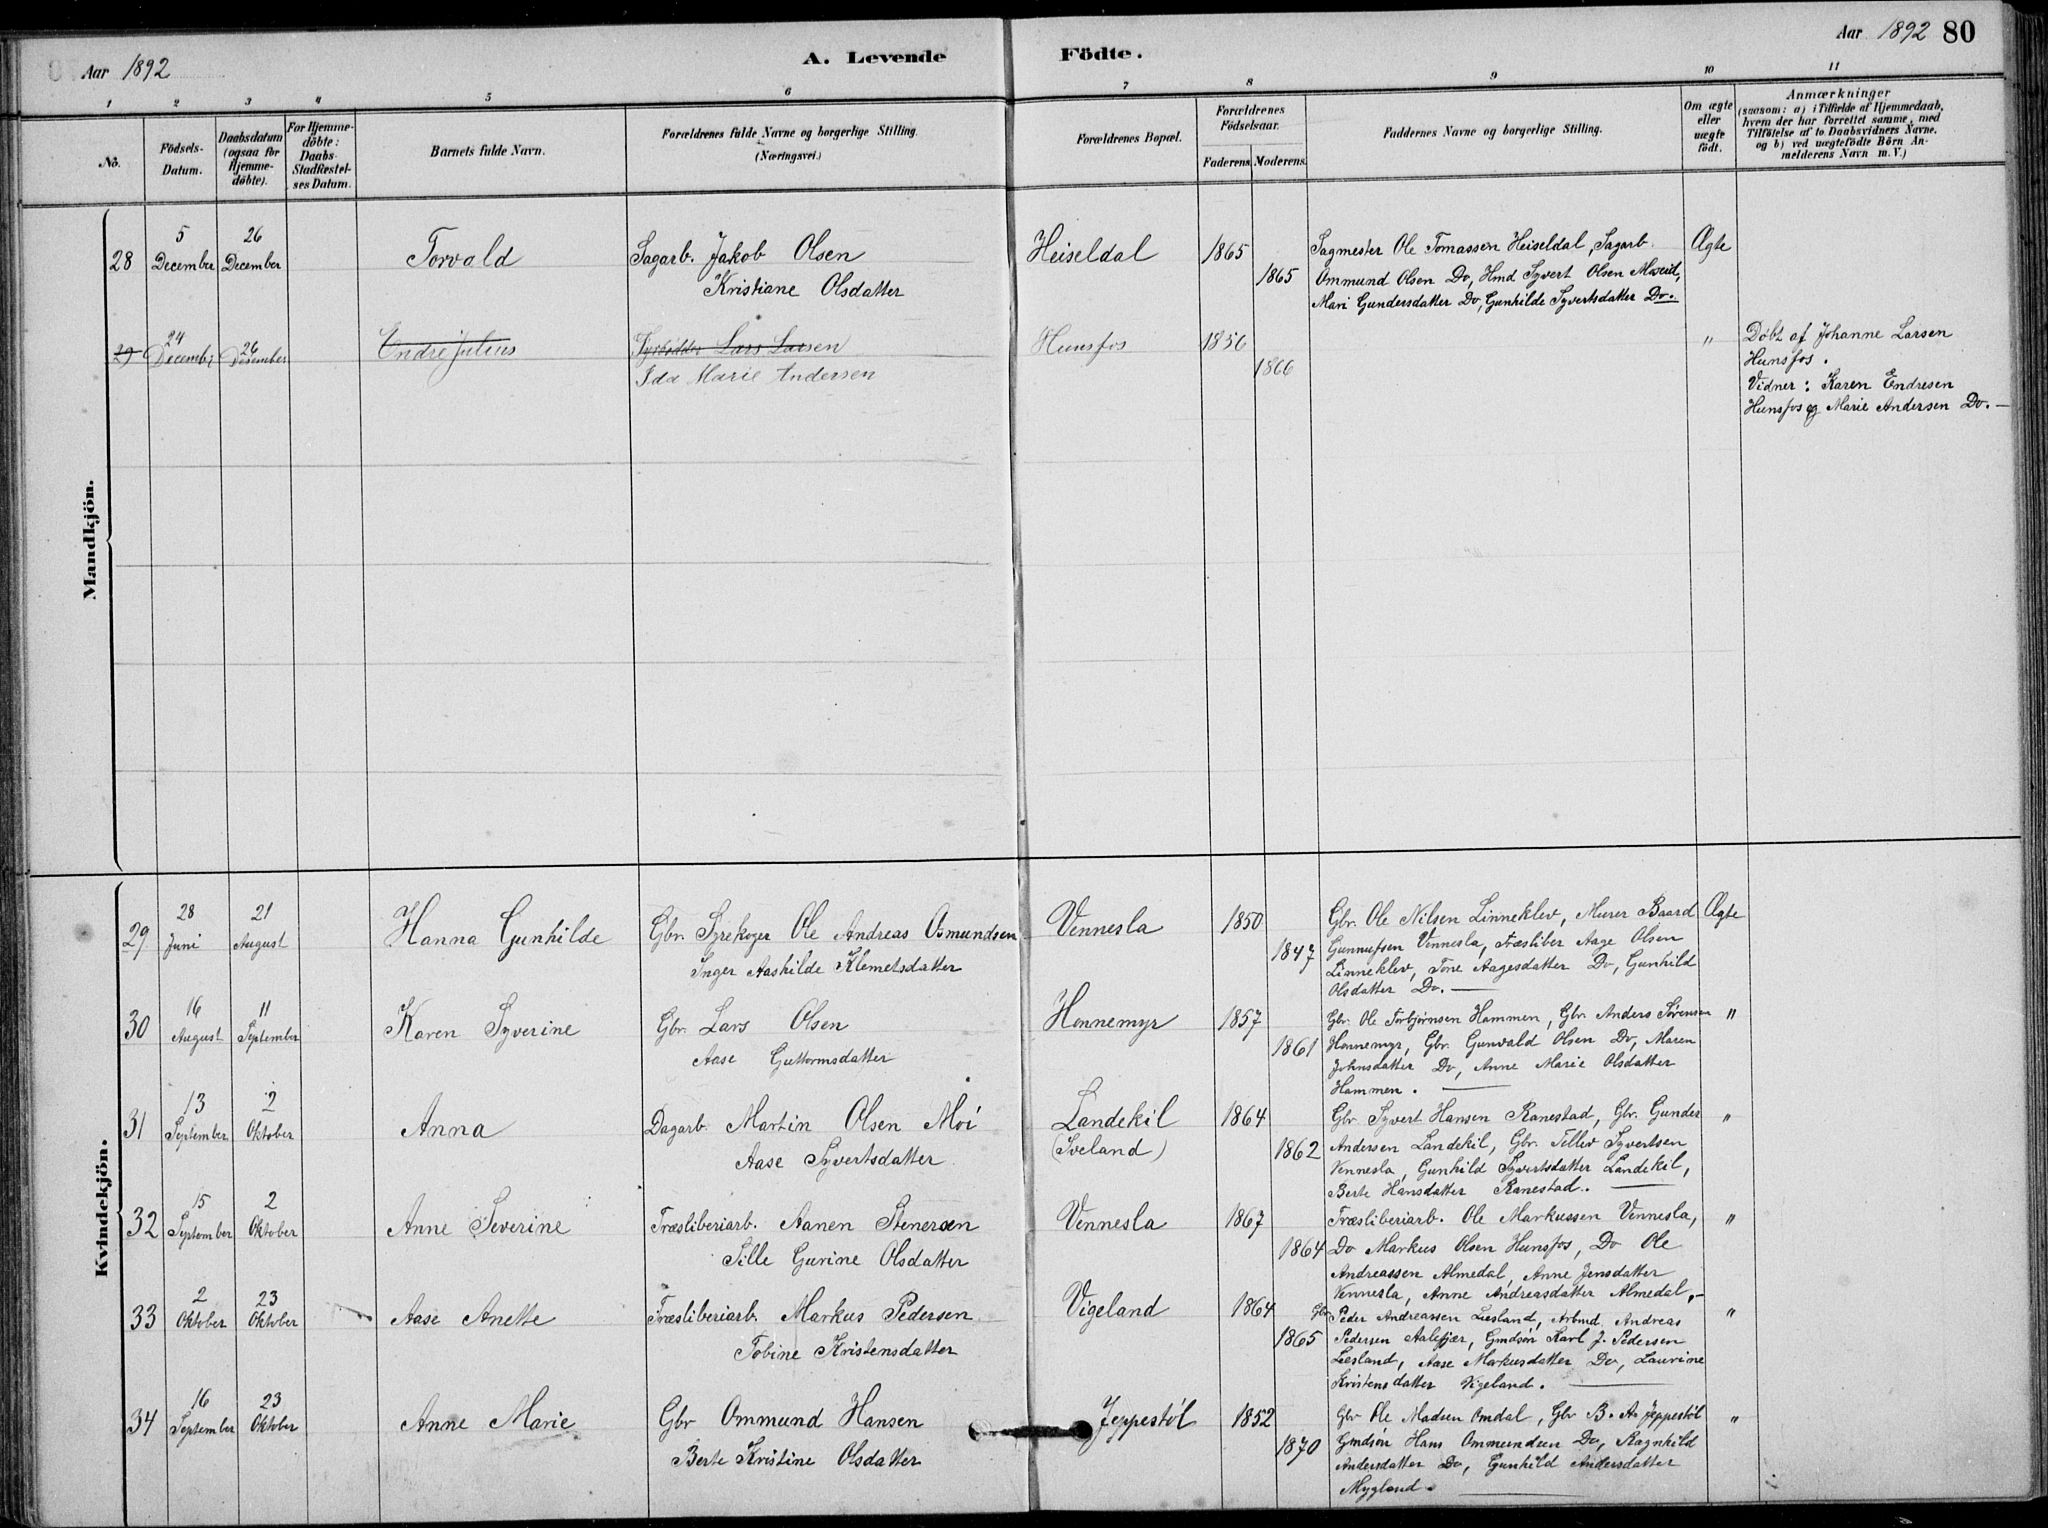 Aar 1892
A. Levende Födte.
Aar 1892 80
1 2 3 4 5 6 7 8 9 10 11
No.
Födsels-Datum.
Daabsdatum (ogsaa for Hjemme-döbte).
For Hjemme-döbte: Daabs-Stadfæstel-ses Datum.
Barnets fulde Navn.
Forældrenes fulde Navne og borgerlige Stilling.
(Næringsvei.)
Forældrenes Bopæl.
Forældrenes Födselsaar.
Faderens. Moderens.
Faddernes Navne og borgerlige Stilling.
Om ægte eller uægte födt.
Anmærkninger
(saasom: a) i Tilfælde af Hjemmedaab,
hvem der har forrettet samme, med
Tilföielse af to Daabsvidners Navne.
og b) ved uægtefödte Börn An-
melderens Navn m. V.)
Mandkjön.
28 5 December 26 December Torvald Sagarb. Jakob Olsen
Kristiane Olsdatter
Heiseldal 1865 1865
Sagmester Ole Tomassen Heiseldal, Sagarb.
Ommund Olsen Do, Hmd Syvert Olsen Moseid,
Mari Gundersdatter Do, Gunhilde Syvertsdatter Do.
Ægte
29 24 December 26 Desember Endre Julius Fyrbødder Lars Larsen
Ida Marie Andersen
Hunsfos 1856 1866 "
Døbt af Johanne Larsen
Hunsfos.
Vidner: Karen Endresen
Hunsfos og Marie Andersen Do. —
Kvindekjön.
29 28 Juni 21 August Hanna Gunhilde Gbr. Syrekoger Ole Andreas Osmundsen
Inger Aashilde Klemetsdatter
Vennesla 1850 1847
Gbr. Ole Nilsen Linneklev, Murer Baard
Gunnufsen Vennesla, Træsliber Aage Olsen
Linneklev, Tone Aagesdatter Do, Gunhild
Olsdatter Do. —
Ægte
30 16 August 11 September Karen Syverine Gbr. Lars Olsen
Aase Guttormsdatter
Honnemyr 1857 1861
Gbr. Ole Torbjørnsen Hommen, Gbr. Anders Sørensen
Honnemyr, Gbr. Gunvald Olsen Do, Maren
Johnsdatter Do, Anne Marie Olsdatter
Hommen. —
"
31 13 September 2 Oktober Anna Dagarb. Martin Olsen Moi
Aase Syvertsdatter
Landekil
(Iveland)
1864 1862
Gbr. Syvert Hansen Ranestad, Gbr. Gunder
Andersen Landekil, Gbr. Tellev Syvertsen
Vennesla, Gunhild Syvertsdatter Landekil,
Berte Hansdatter Ranestad. —
"
32 15 September 2 Oktober Anne Severine Træsliberiarb. Aanen Stenersen
Sille Gurine Olsdatter
Vennesla 1867 1864
Træsliberiarb. Ole Markussen Vennesla,
Do Markus Olsen Hunsfos, Do Ole
Andreassen Almedal, Anne Jensdatter
Vennesla, Anne Andreasdatter Almedal. —
"
33 2 Oktober 23 Oktober Aase Anette Træsliberiarb. Markus Pedersen
Tobine Kristensdatter
Vigeland 1864 1865
Gbr Peder Andreassen Liesland, Arbmd. Andreas
Pedersen Aalefjær, Gmdsøn Karl J. Pedersen
Liesland, Aase Markusdatter Do, Laurine
Kristensdatter Vigeland. —
"
34 16 September 23 Oktober Anne Marie Gbr Ommund Hansen
Berte Kristine Olsdatter
Jeppestøl 1852 1870
Gbr Ole Madsen Omdal, Gbr B. A. Jeppestøl
Gmdsøn Hans Ommundsen Do, Ragnhild
Andersdatter Do, Gunhild Andersdatter
Mygland. —
"